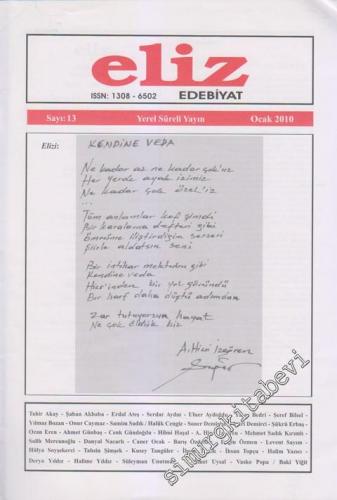 eliz
ISSN: 1308 - 6502 EDEBİYAT
Sayı: 13 Yerel Süreli Yayın Ocak 2010
Elizi:
KENDİNE VEDA
Ne kadar az ne kadar çok'uz
Her yerde ayak izimiz
Ne kadar çok özel'iz
...
Tüm anlamlar kef şimdi
Bir karalama defteri gibi
Ömrüme iliştirdiğin serseri
Şiirle aldatsın seni
Bir intihar mektubu gibi
Kendine veda
Hiçi'nden bir yol göründü
Bir harf daha düştü adımdan
Zar tutuyorsun hayat
Ne çok öldük biz
A. Hicri İzgören
Tahir Akay - Şaban Akbaba - Erdal Ateş - Serdar Aydın - Ulser Aydoğdu - Bedri - Şeref Bilsel -
Yılmaz Bozan - Onur Caymaz - Samim Sadık / Halik Cengiz - Soner Demirbaş - Demirci - Şükrü Erbaş -
Ozan Eren - Ahmet Günbaş - Cenk Gündoğdu - Hilmi Haşal - A. Hicri İzgören - Mehmet Sadık Kırımlı -
Salih Mercanoğlu - Danyal Nacarlı - Caner Ocak - Barış Özgür Özmen - Levent Sayım -
Hülya Soyşekerci - Tahsin Şimşek - Kuzey Topuz - İhsan Topçu - Halim Yazıcı -
Derya Yıldız - Halime Yıldız - Süleyman Unutmaz - Ahmet Uysal - Vasko Popa / Baki Yiğit
simurgkitabevi